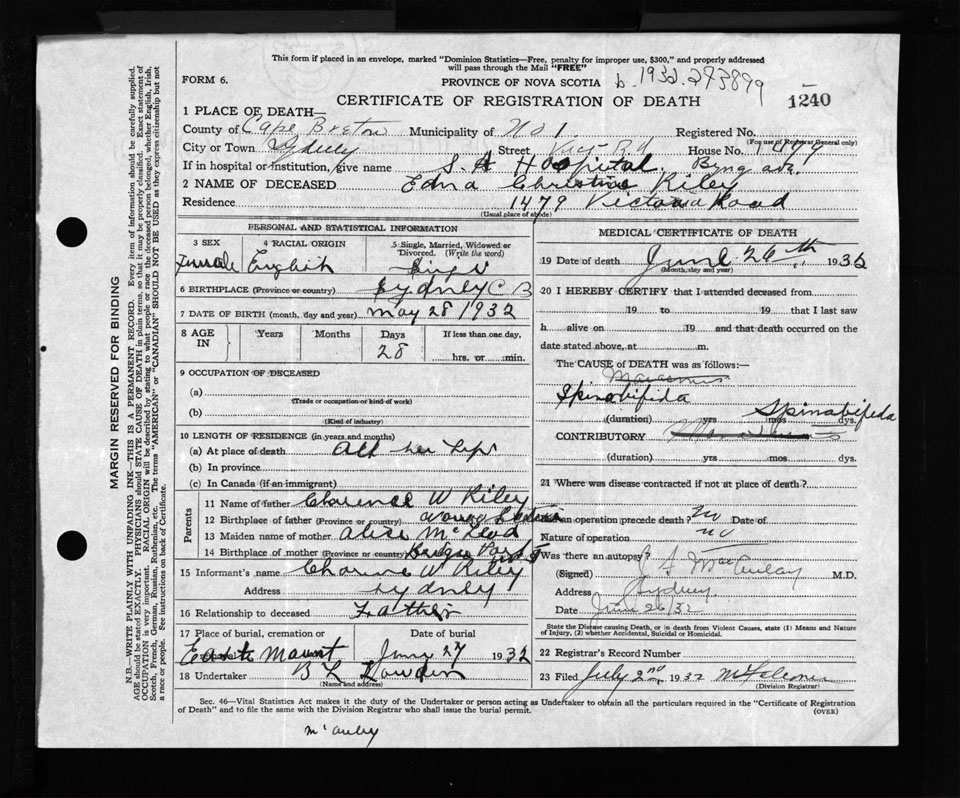 This form if placed in an envelope, marked "Dominion Statistics—Free, penalty for improper use, $300," and properly addressed
will pass through the Mail "FREE"
FORM 6.
PROVINCE OF NOVA SCOTIA
b. 1932.273879
CERTIFICATE OF REGISTRATION OF DEATH
1240
1 PLACE OF DEATH—
County of Cape Breton Municipality of No 1 Registered No.
(For use of Registrar General only)
City or Town Sydney Street Vic. Rd House No. 1479
If in hospital or institution, give name S. A Hospital Byng ave.
2 NAME OF DECEASED Edna Christine Riley
Residence 1479 Victoria Road
(Usual place of abode)
PERSONAL AND STATISTICAL INFORMATION
3 SEX 4 RACIAL ORIGIN 5 Single, Married, Widowed or Divorced. (Write the word)
Female English Single
6 BIRTHPLACE (Province or country) Sydney C B
7 DATE OF BIRTH (month, day and year) May 28 1932
8 AGE IN Years Months Days If less than one day,
28 hrs. or min.
9 OCCUPATION OF DECEASED
(a)
(Trade or occupation or kind of work)
(b)
(Kind of industry)
10 LENGTH OF RESIDENCE (in years and months)
(a) At place of death All her Life
(b) In province
(c) In Canada (if an immigrant)
Parents
11 Name of father Clarence W Riley
12 Birthplace of father (Province or country)
13 Maiden name of mother Alice McLeod
14 Birthplace of mother (Province or country)
15 Informant's name Clarence W Riley
Address Sydney
16 Relationship to deceased Father
17 Place of burial, cremation or Date of burial
East Mount June 27 1932
18 Undertaker B L Dowden
(Name and address)
MEDICAL CERTIFICATE OF DEATH
19 Date of death June 26th 1932
(Month, day and year)
20 I HEREBY CERTIFY that I attended deceased from
19 to 19 that I last saw
h alive on 19 and that death occurred on
date stated above, at m.
The CAUSE of DEATH was as follows:
Marasmus
Spinabifida
Spinabifida
(duration) yrs mos dys.
CONTRIBUTORY Marasmus
(duration) yrs mos dys.
21 Where was disease contracted if not at place of death?
Did an operation precede death? no Date of
Nature of operation no
Was there an autopsy?
(Signed) MacAulay M.D.
Address Sydney
Date June 26/32
State the Disease causing Death, or in death from Violent Causes, state (1) Means and
Nature of Injury, (2) whether Accidental, Suicidal or Homicidal.
22 Registrar's Record Number
23 Filed July 2nd 1932
(Division Registrar)
Sec. 46—Vital Statistics Act makes it the duty of the Undertaker or person acting as Undertaker to obtain all the particulars required in the "Certificate of Registration
of Death" and to file the same with the Division Registrar who shall issue the burial permit.
(OVER)
McAuley
MARGIN RESERVED FOR BINDING
N.B.—WRITE PLAINLY WITH UNFADING INK—THIS IS A PERMANENT RECORD. Every item of information should be carefully supplied.
AGE should be stated EXACTLY. PHYSICIANS should STATE CAUSE OF DEATH in plain terms, so that it may be properly classified. Exact statement of
OCCUPATION is very important. RACIAL ORIGIN will be described by stating to what people or race the deceased person belonged, whether English, Irish,
Scotch, French, German, Russian, Ruthenian, etc. The terms "AMERICAN" or "CANADIAN" SHOULD NOT BE USED as they express citizenship but not
a race or people. Fee instructions on back of Certificate.